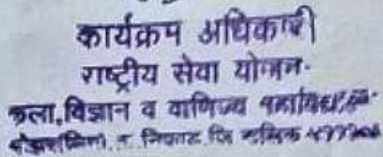 कार्यक्रम अधिकारी
राष्ट्रीय सेवा योजना
कला, विज्ञान व वाणिज्य महाविद्यालय
ता. निफाड, जि. नासिक